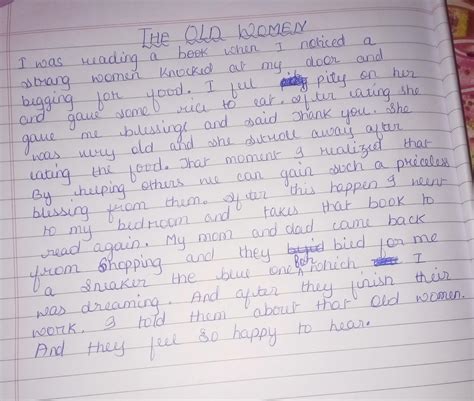 THE OLD WOMEN
I was reading a book when I noticed a
strang women knocked at my door and
bugging for food. I ful pity on her
and gave some rice to eat. After eating she
gave me blessings and said Thank you. She
was very old and she strroll away after
eating the food. That moment I realized that
By helping others we can gain such a priceless
blessing from them. After this happen I went
to my bedroom and takes that book to
read again. My mom and dad came back
from shopping and they bird for me
a sneaker the blue one which I
was dreaming. And after they finish their
work, I told them about that Old women.
And they feel so happy to hear.